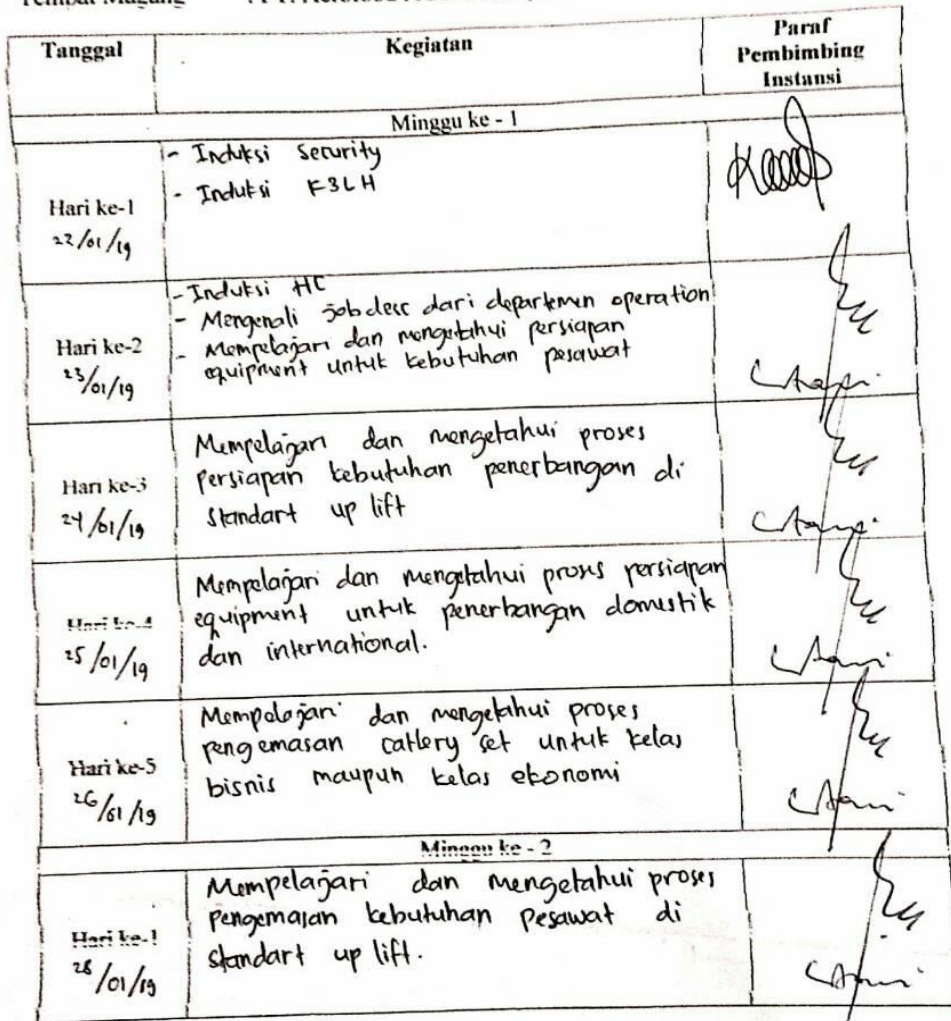 Tempat Magang
Tanggal
Kegiatan
Paraf
Pembimbing
Instansi
Minggu ke - 1
Hari ke-1
22/01/19
- Induksi Security
- Induksi K3LH
Hari ke-2
23/01/19
- Induksi HC
- Mengenali jobdesc dari departemen operation
- Mempelajari dan mengetahui persiapan
equipment untuk kebutuhan pesawat
Hari ke-3
24/01/19
Mempelajari dan mengetahui proses
Persiapan kebutuhan penerbangan di
standart up lift
Hari ke-4
25/01/19
Mempelajari dan mengetahui proses persiapan
equipment untuk penerbangan domestik
dan international.
Hari ke-5
26/01/19
Mempelajari dan mengetahui proses
pengemasan catlery set untuk kelas
bisnis maupun kelas ekonomi
Minggu ke - 2
Hari ke-1
28/01/19
Mempelajari dan mengetahui proses
pengemasan kebutuhan pesawat di
standart up lift.